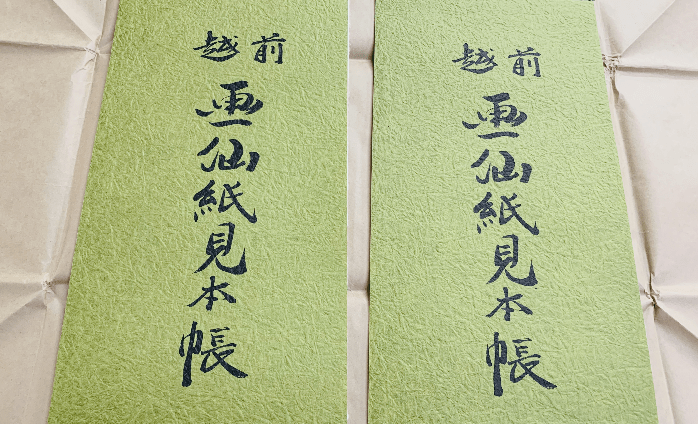 越前
画仙紙見本帳
越前
画仙紙見本帳